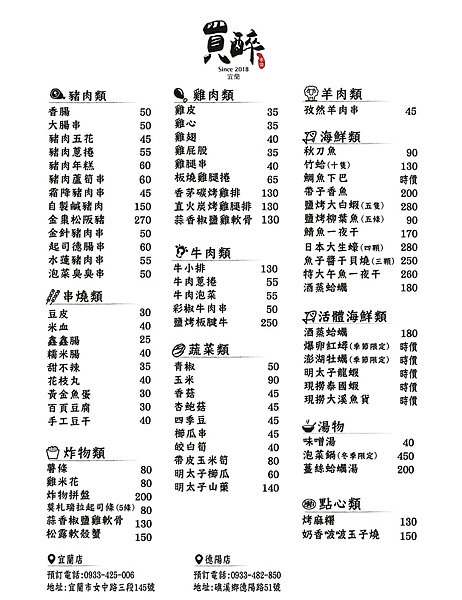 買醉
Since 2018
宜蘭
豬肉類
香腸 50
大腸串 50
豬肉五花 45
豬肉蔥捲 55
豬肉年糕 60
豬肉蘆筍串 60
霜降豬肉串 45
自製鹹豬肉 150
金棗松阪豬 270
金針豬肉串 50
起司德腸串 60
水蓮豬肉串 55
泡菜臭臭串 50
串燒類
豆皮 30
米血 40
鑫鑫腸 25
糯米腸 40
甜不辣 35
花枝丸 40
黃金魚蛋 30
百頁豆腐 30
手工豆干 40
炸物類
薯條 80
雞米花 80
炸物拼盤 200
莫札瑞拉起司條(5條) 80
蒜香椒鹽雞軟骨 130
松露軟殼蟹 150
雞肉類
雞皮 35
雞心 35
雞翅 40
雞屁股 35
雞腿串 40
板燒雞腿捲 65
香茅碳烤雞排 130
直火炭烤雞腿排 130
蒜香椒鹽雞軟骨 130
牛肉類
牛小排 130
牛肉蔥捲 55
牛肉泡菜 55
彩椒牛肉串 50
鹽烤板腱牛 250
蔬菜類
青椒 50
玉米 90
香菇 45
杏鮑菇 45
四季豆 45
櫛瓜串 45
皎白筍 40
帶皮玉米筍 80
明太子櫛瓜 60
明太子山藥 140
羊肉類
孜然羊肉串 45
海鮮類
秋刀魚 90
竹蛤(十隻) 130
鯛魚下巴 時價
帶子香魚 200
鹽烤大白蝦(五隻) 280
鹽烤柳葉魚(五條) 90
鯖魚一夜干 170
日本大生蠔(四顆) 280
魚子醬干貝燒(三顆) 250
特大午魚一夜干 260
酒蒸蛤蠣 180
活體海鮮類
酒蒸蛤蠣 180
爆卵紅蟳(季節限定) 時價
澎湖牡蠣(季節限定) 時價
明太子龍蝦 時價
現撈泰國蝦 時價
現撈大溪魚貨 時價
湯物
味噌湯 40
泡菜鍋(冬季限定) 450
薑絲蛤蠣湯 200
點心類
烤麻糬 130
奶香啵啵玉子燒 150
宜蘭店
預訂電話:0933-425-006
地址:宜蘭市女中路三段145號
德陽店
預訂電話:0933-482-850
地址:礁溪鄉德陽路51號